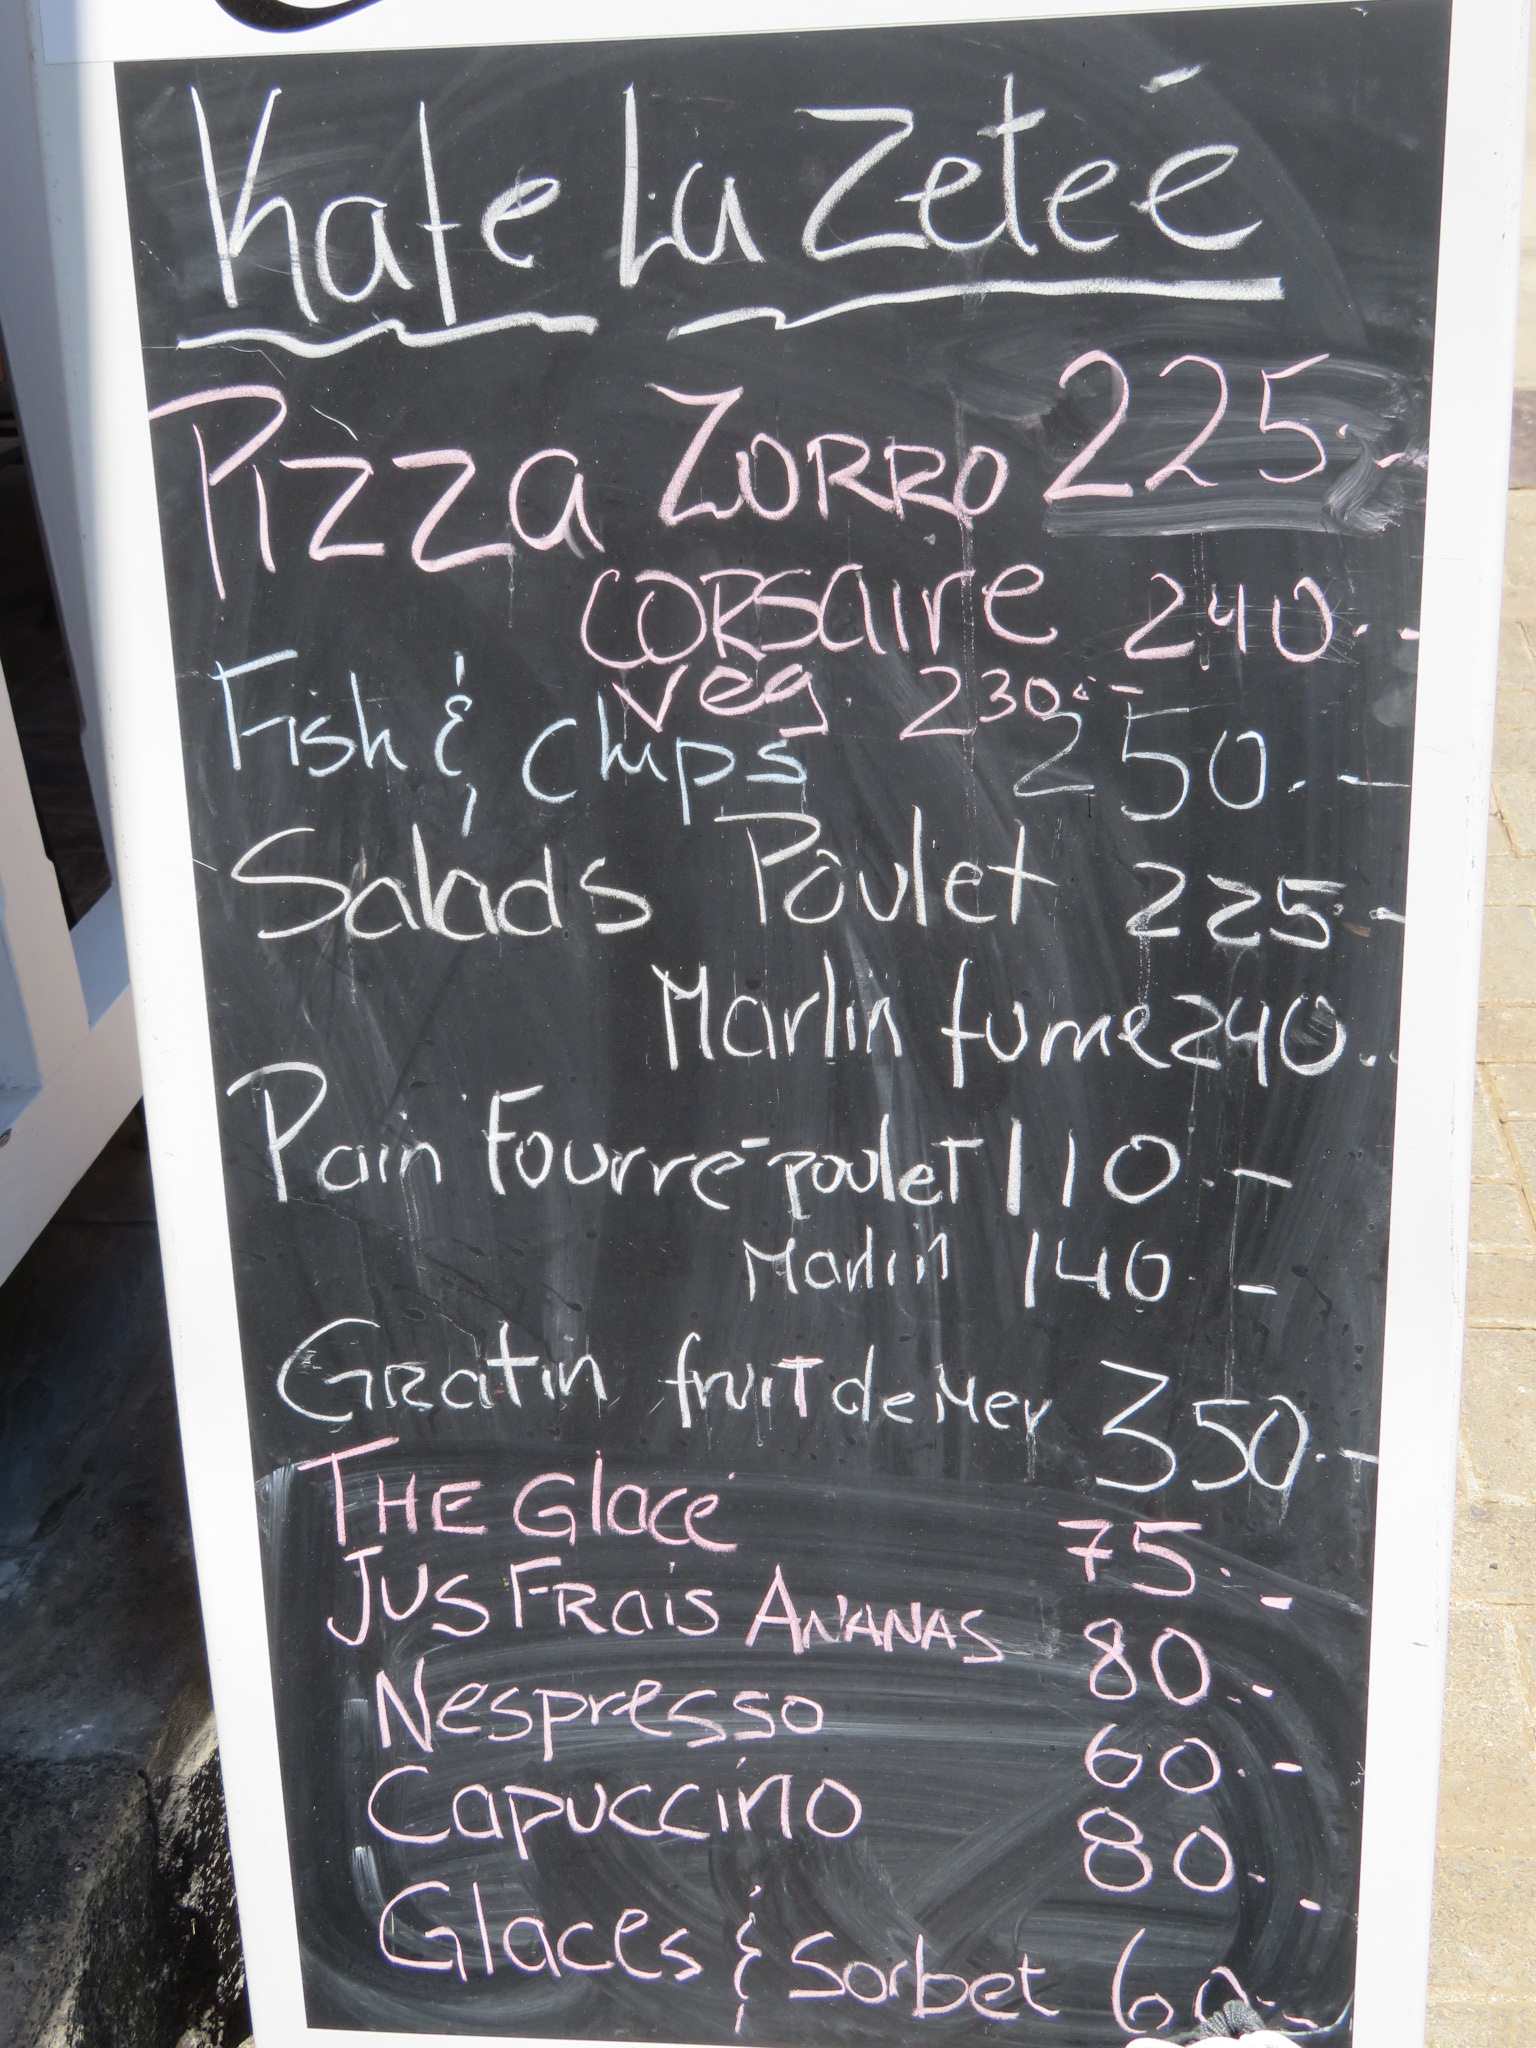 Kafe La Zeteé
Pizza Zorro 225.-
Corsaire 240.-
veg. 230.-
Fish & chips 250.-
Salads Poulet 225.-
Marlin fume 240.-
Pain Fourré poulet 110.-
Marlin 140.-
Gratin fruit de Mer 350.-
THE Glacé 75.-
JUS FRais ANANAS 80.-
Nespresso 60.-
Capuccino 80.-
Glaces & Sorbet 60.-